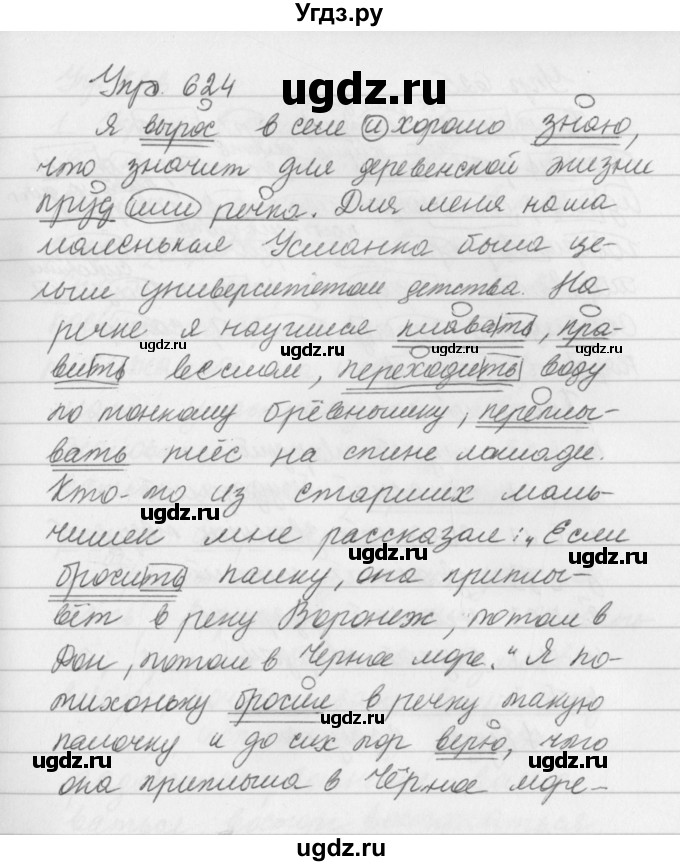 Угдз.ру
Упр. 624
ugdz.ru
Я вырос в селе и хорошо знаю,
что значит для деревенской жизни
пруд или речка. Для меня наша
маленькая Усманка была це-
лым университетом детства. На
речке я научился плавать, пра-
ugdz.ru
ugdz.ru
ugdz.ru
вить веслом, переходить воду
по тонкому брёвнышку, переплы-
вать плёс на спине лошади.
Кто-то из старших маль-
ugdz.ru
чишек мне рассказал: „Если
ugdz.ru
бросить палку, она приплы-
вёт в реку Воронеж, потом в
Дон, потом в Чёрное море." Я по-
тихоньку бросил в речку такую
ugdz.ru
палочку и до сих пор верю, что
ugdz.ru
ugdz.ru
она приплыла в Чёрное море-
ugdz.ru